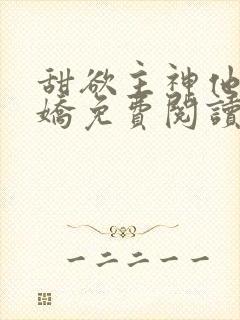 甜欲主神他
嬌免費閱讀
一二二一一